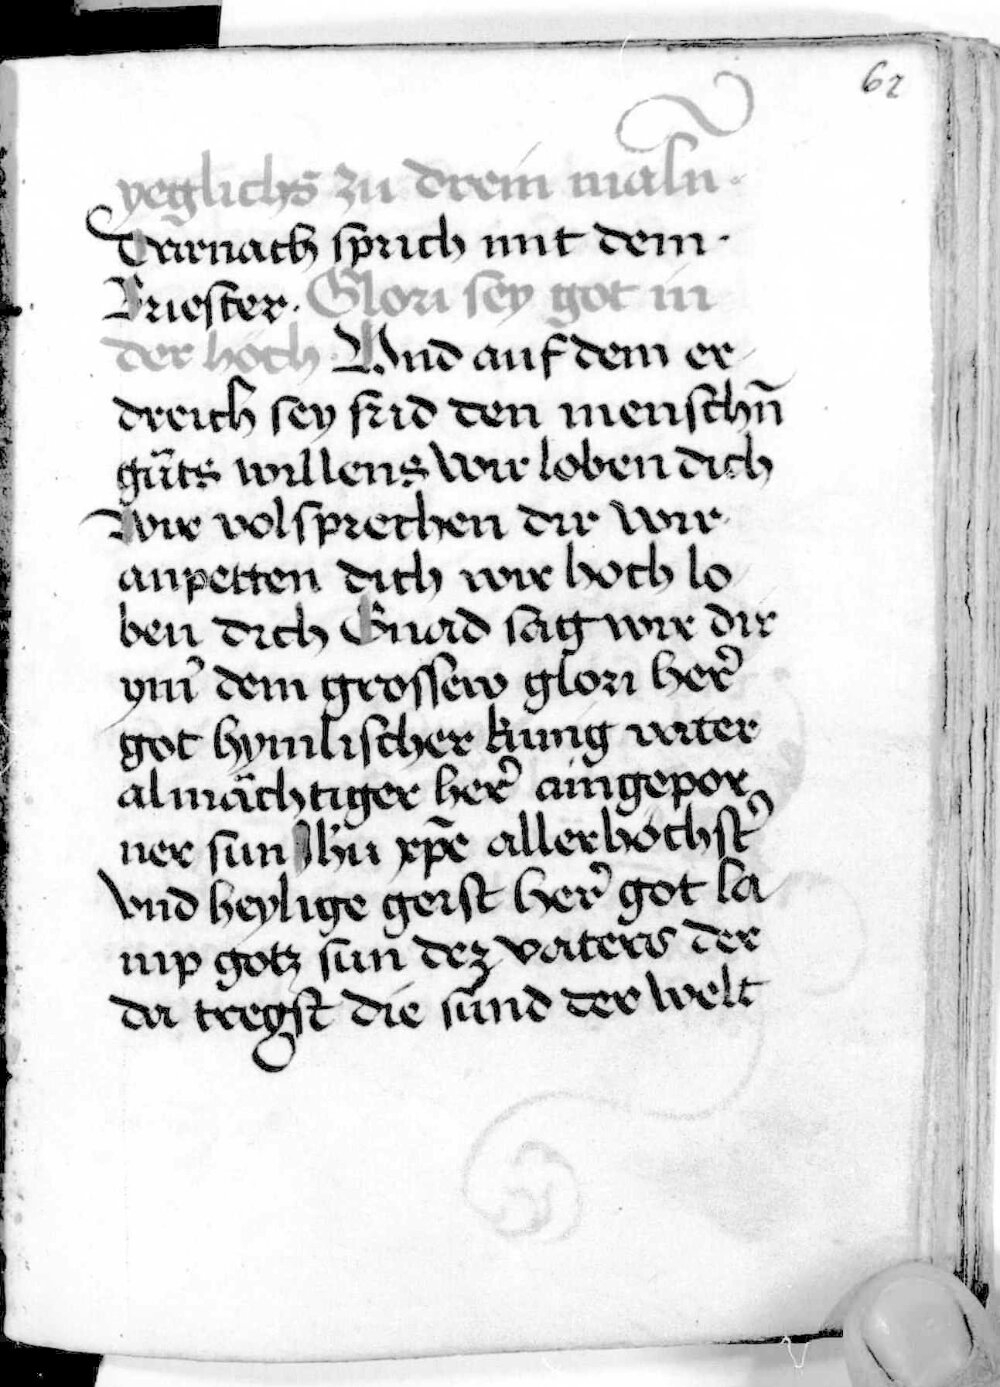 62
yeglichs zu drein maln̄
Darnach sprich mit dem
Priester. Glori sey got in
der höch Vnd auf dem er
dreich sey frid den menschn̄
gůts willens Wir loben dich
Wir volsprechen dir Wir
anpetten dich wir hoch lo
ben dich Gnad sag wir dir
vm̄ dem grossew glori her᷑
got hymlischer kunig vater
almächtiger her᷑ aingepor
ner sun Jh̄u xp̄e allerhöchst᷑
vnd heylige geist her᷑ got la
mp gotz sun dez vaters der
da tregst die sünd der welt